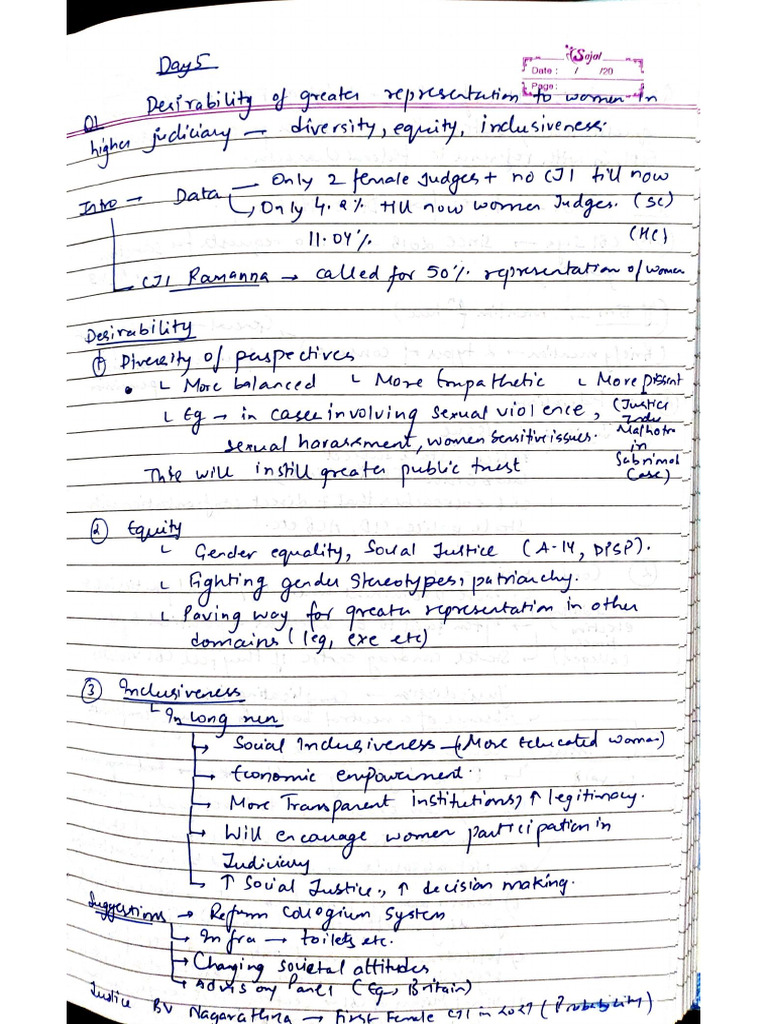 Day 5
Sojal
Date : / /20
Page:
Q1 Desirability of greater representation to women in
higher judiciary — diversity, equity, inclusiveness.
Intro → Data — Only 2 female Judges + no CJI till now
↳ Only 4.2% till now women Judges. (SC)
11.04% (HC)
CJI Ramanna → called for 50% representation of women
Desirability
① Diversity of perspectives
• ↳ More balanced ↳ More Empathetic ↳ More Dissent
↳ Eg → in cases involving sexual violence, (Justice
Indu
sexual harassment, women sensitive issues. Malhotra
in
This will instill greater public trust Sabrimal
Case)
② Equity
↳ Gender equality, Social Justice (A-14, DPSP).
↳ Fighting gender stereotypes, patriarchy.
↳ Paving way for greater representation in other
domains (leg, exe etc)
③ Inclusiveness
↳ In long run
→ Social Inclusiveness — (More Educated Woman)
→ Economic empowerment.
→ More Transparent institutions, ↑ legitimacy.
→ Will encourage women participation in
Judiciary
→ ↑ Social Justice, ↑ decision making.
Suggestions → Reform Collogium System
→ Infra → toilets etc.
→ Changing societal attitudes
→ Advisory Panel (Eg, Britain)
Justice BV Nagarathna → First Female CJI in 2027 (Probability)